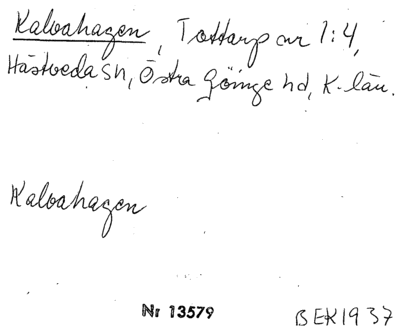 Kalvahagen, Tottarp nr 1:4,
Hästveda sn, Östra Göinge hd, K-län.
Kalvahagen
Nr 13579
BEK1937